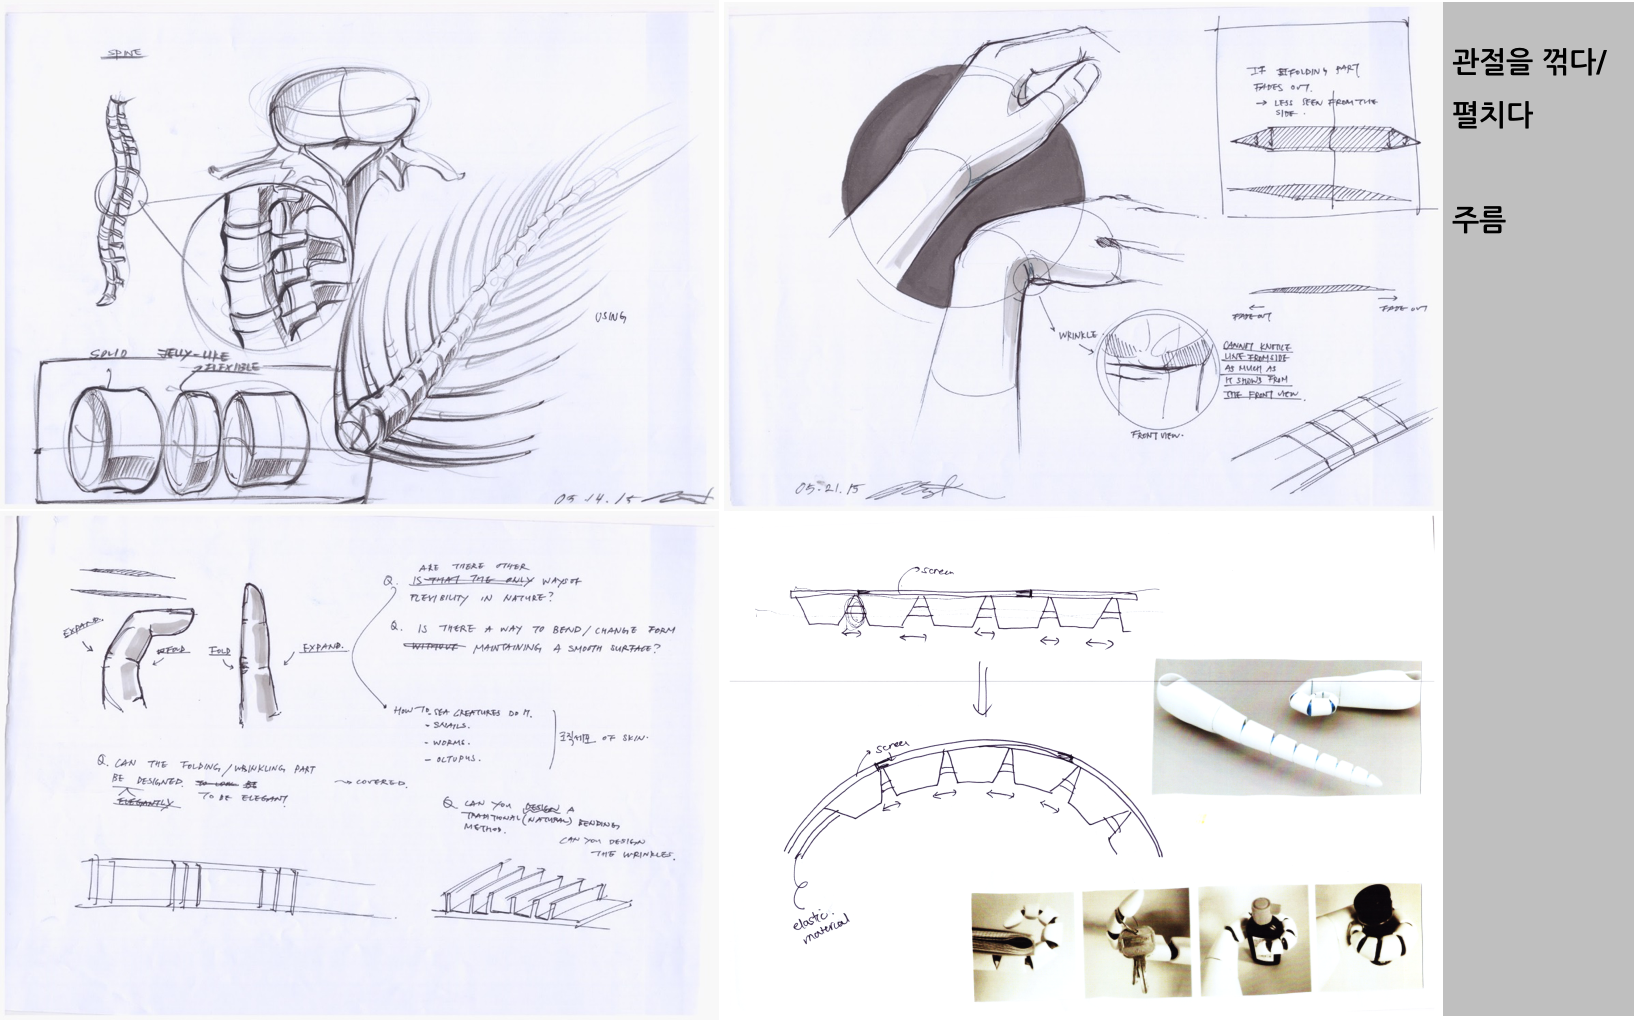 SPINE
SOLID
JELLY-LIKE
FLEXIBLE
USING
05.14.15
IF FOLDING PART
FADES OUT.
→ LESS SEEN FROM THE
SIDE.
WRINKLE.
FADE OUT
FADE OUT
CANNET KNOTICE
LINE FROM SIDE
AS MUCH AS
IT SHOWS FROM
THE FRONT VIEW.
FRONT VIEW.
05.21.15
관절을 꺾다/
펼치다
주름
EXPAND.
FOLD
FOLD
EXPAND.
ARE THERE OTHER
Q. IS THAT THE ONLY WAYS OF
FLEVIBILITY IN NATURE?
Q. IS THERE A WAY TO BEND/CHANGE FORM
WITHOUT MAINTAINING A SMOOTH SURFACE?
HOW TO. SEA CREATURES DO IT.
- SNAILS.
- WORMS.
- OLTUPUS.
OF SKIN.
Q. CAN THE FOLDING/WRINKLING PART
BE DESIGNED.
ELEGANTLY
TO BE ELEGANT.
→ COVERED.
Q CAN YOU DESIGN A
TRADITIONAL (NATURAL) BENDING
METHOD.
CAN YOU DESIGN
THE WRINKLES.
screen
screen
elastic.
material